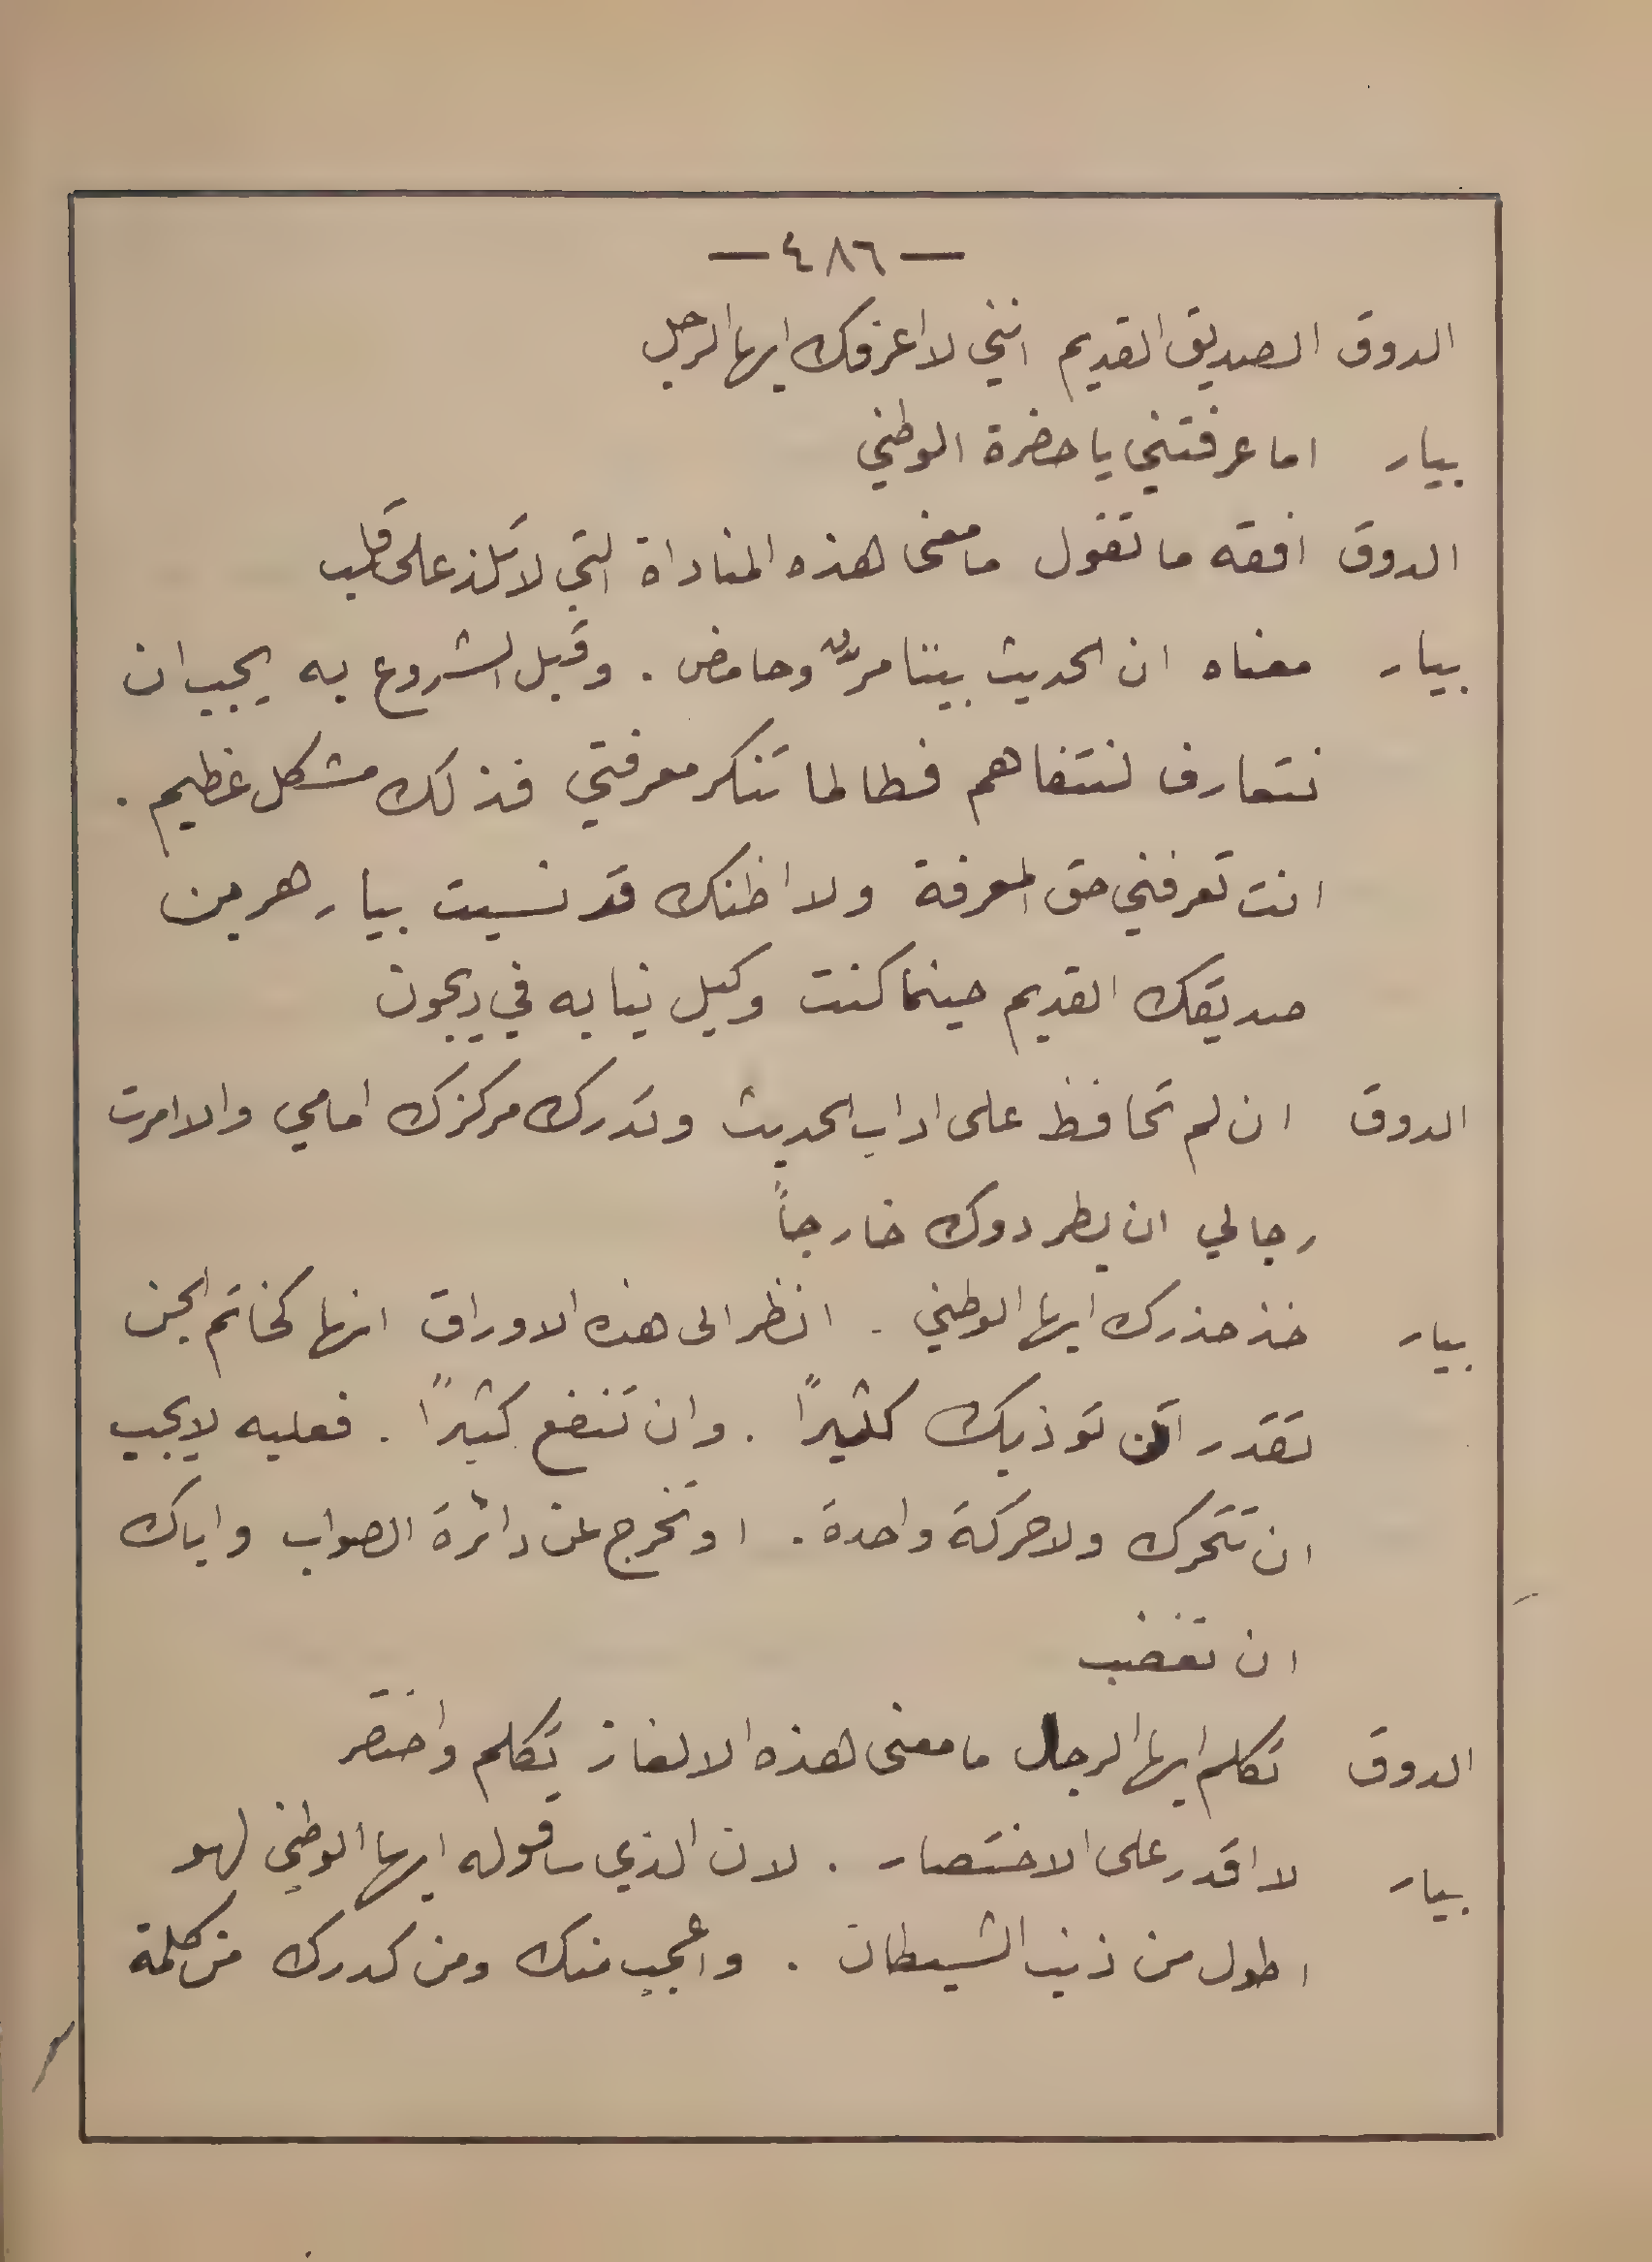 — ٤٨٦ —
الدوق الصديق القديم انني لا اعرفك ايها الرجل
بيار اما عرفتني يا حضرة الوطني
الدوق افقه ما تقول ما معنى هذه المناداة التي لا تلذ على قلب
بيار معناه ان الحديث بيننا مرٌ وحامض . وقبل الشروع به يجب ان
نتعارف لنتفاهم فطالما تنكر معرفتي فذلك مشكل عظيم .
انت تعرفني حق المعرفة ولا اظنك قد نسيت بيار هرمين
صديقك القديم حينما كنت وكيل نيابه في ديجون
الدوق ان لم تحافظ على اداب الحديث وتدرك مركزك امامي والا امرت
رجالي ان يطردوك خارجاً
بيار خذ حذرك ايها الوطني . انظر الى هذه الاوراق انها كخاتم الجن
تقدر ان توذيك كثيراً . وان تنفع كثيراً . فعليه لا يجب
ان تتحرك ولا حركة واحدة . او تخرج عن دائرة الصواب واياك
ان تغضب
الدوق تكلم ايها الرجل ما معنى هذه الالغاز تكلم واختصر
بيار لا اقدر على الاختصار . لان الذي ساقوله ايها الوطني لهو
اطول من ذنب الشيطان . واعجب منك ومن كدرك من كلمة